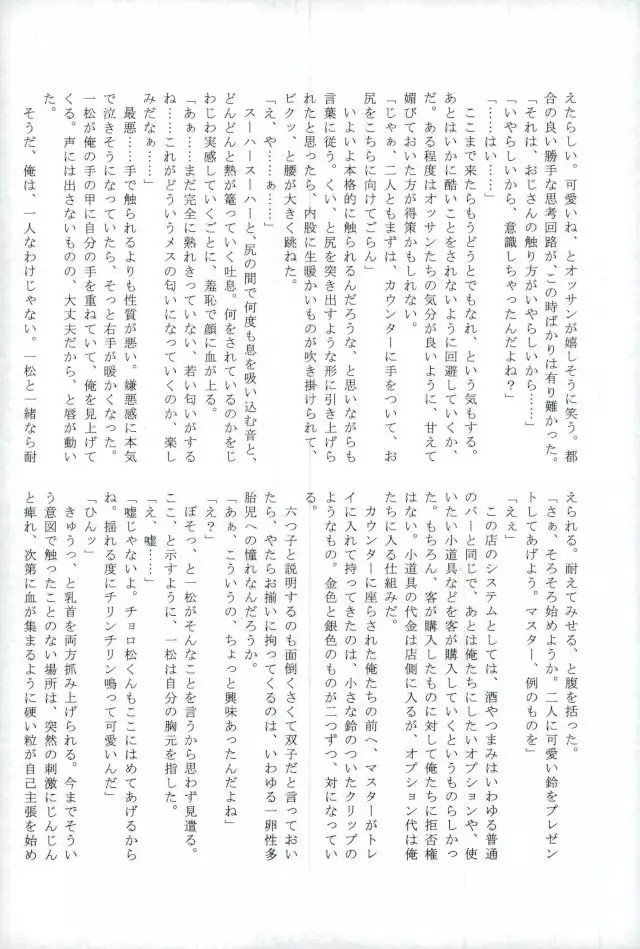 えたらしい。可愛いね、とオッサンが嬉しそうに笑う。都
合の良い勝手な思考回路が、この時ばかりは有り難かった。
「それは、おじさんの触り方がいやらしいから……」
「いやらしいから、意識しちゃったんだよね？」
「……はい……」
ここまで来たらもうどうとでもなれ、という気もする。
あとはいかに酷いことをされないように回避していくか、
だ。ある程度はオッサンたちの気分が良いように、甘えて
媚びておいた方が得策かもしれない。
「じゃぁ、二人ともまずは、カウンターに手をついて、お
尻をこちらに向けてごらん」
いよいよ本格的に触られるんだろうな、と思いながらも
言葉に従う。くい、と尻を突き出すような形に引き上げら
れたと思ったら、内股に生暖かいものが吹き掛けられて、
ビクッ、と腰が大きく跳ねた。
「え、や……ぁ……」
スーハースーハーと、尻の間で何度も息を吸い込む音と、
どんどんと熱が篭っていく吐息。何をされているのかをじ
わじわ実感していくごとに、羞恥で顔に血が上る。
「あぁ……まだ完全に熟れきっていない、若い匂いがする
ね……これがどういうメスの匂いになっていくのか、楽し
みだなぁ……」
最悪……手で触られるよりも性質が悪い。嫌悪感に本気
で泣きそうになっていたら、そっと右手が暖かくなった。
一松が俺の手の甲に自分の手を重ねていて、俺を見上げて
くる。声には出さないものの、大丈夫だから、と唇が動い
た。
そうだ、俺は、一人なわけじゃない。一松と一緒なら耐
えられる。耐えてみせる、と腹を括った。
「さぁ、そろそろ始めようか。二人に可愛い鈴をプレゼン
トしてあげよう。マスター、例のものを」
「えぇ」
この店のシステムとしては、酒やつまみはいわゆる普通
のバーと同じで、あとは俺たちにしたいオプションや、使
いたい小道具などを客が購入していくというものらしかっ
た。もちろん、客が購入したものに対して俺たちに拒否権
はない。小道具の代金は店側に入るが、オプション代は俺
たちに入る仕組みだ。
カウンターに座らされた俺たちの前へ、マスターがトレ
イに入れて持ってきたのは、小さな鈴のついたクリップの
ようなもの。金色と銀色のものが二つずつ、対になってい
る。
六つ子と説明するのも面倒くさくて双子だと言っておい
たら、やたらお揃いに拘ってくるのは、いわゆる一卵性多
胎児への憧れなんだろうか。
「あぁ、こういうの、ちょっと興味あったんだよね」
「え？」
ぼそっ、と一松がそんなことを言うから思わず見遣る。
ここ、と示すように、一松は自分の胸元を指した。
「え、嘘……」
「嘘じゃないよ。チョロ松くんもここにはめてあげるから
ね。揺れる度にチリンチリン鳴って可愛いんだ」
「ひんッ」
きゅうっ、と乳首を両方抓み上げられる。今までそうい
う意図で触ったことのない場所は、突然の刺激にじんじん
と痺れ、次第に血が集まるように硬い粒が自己主張を始め